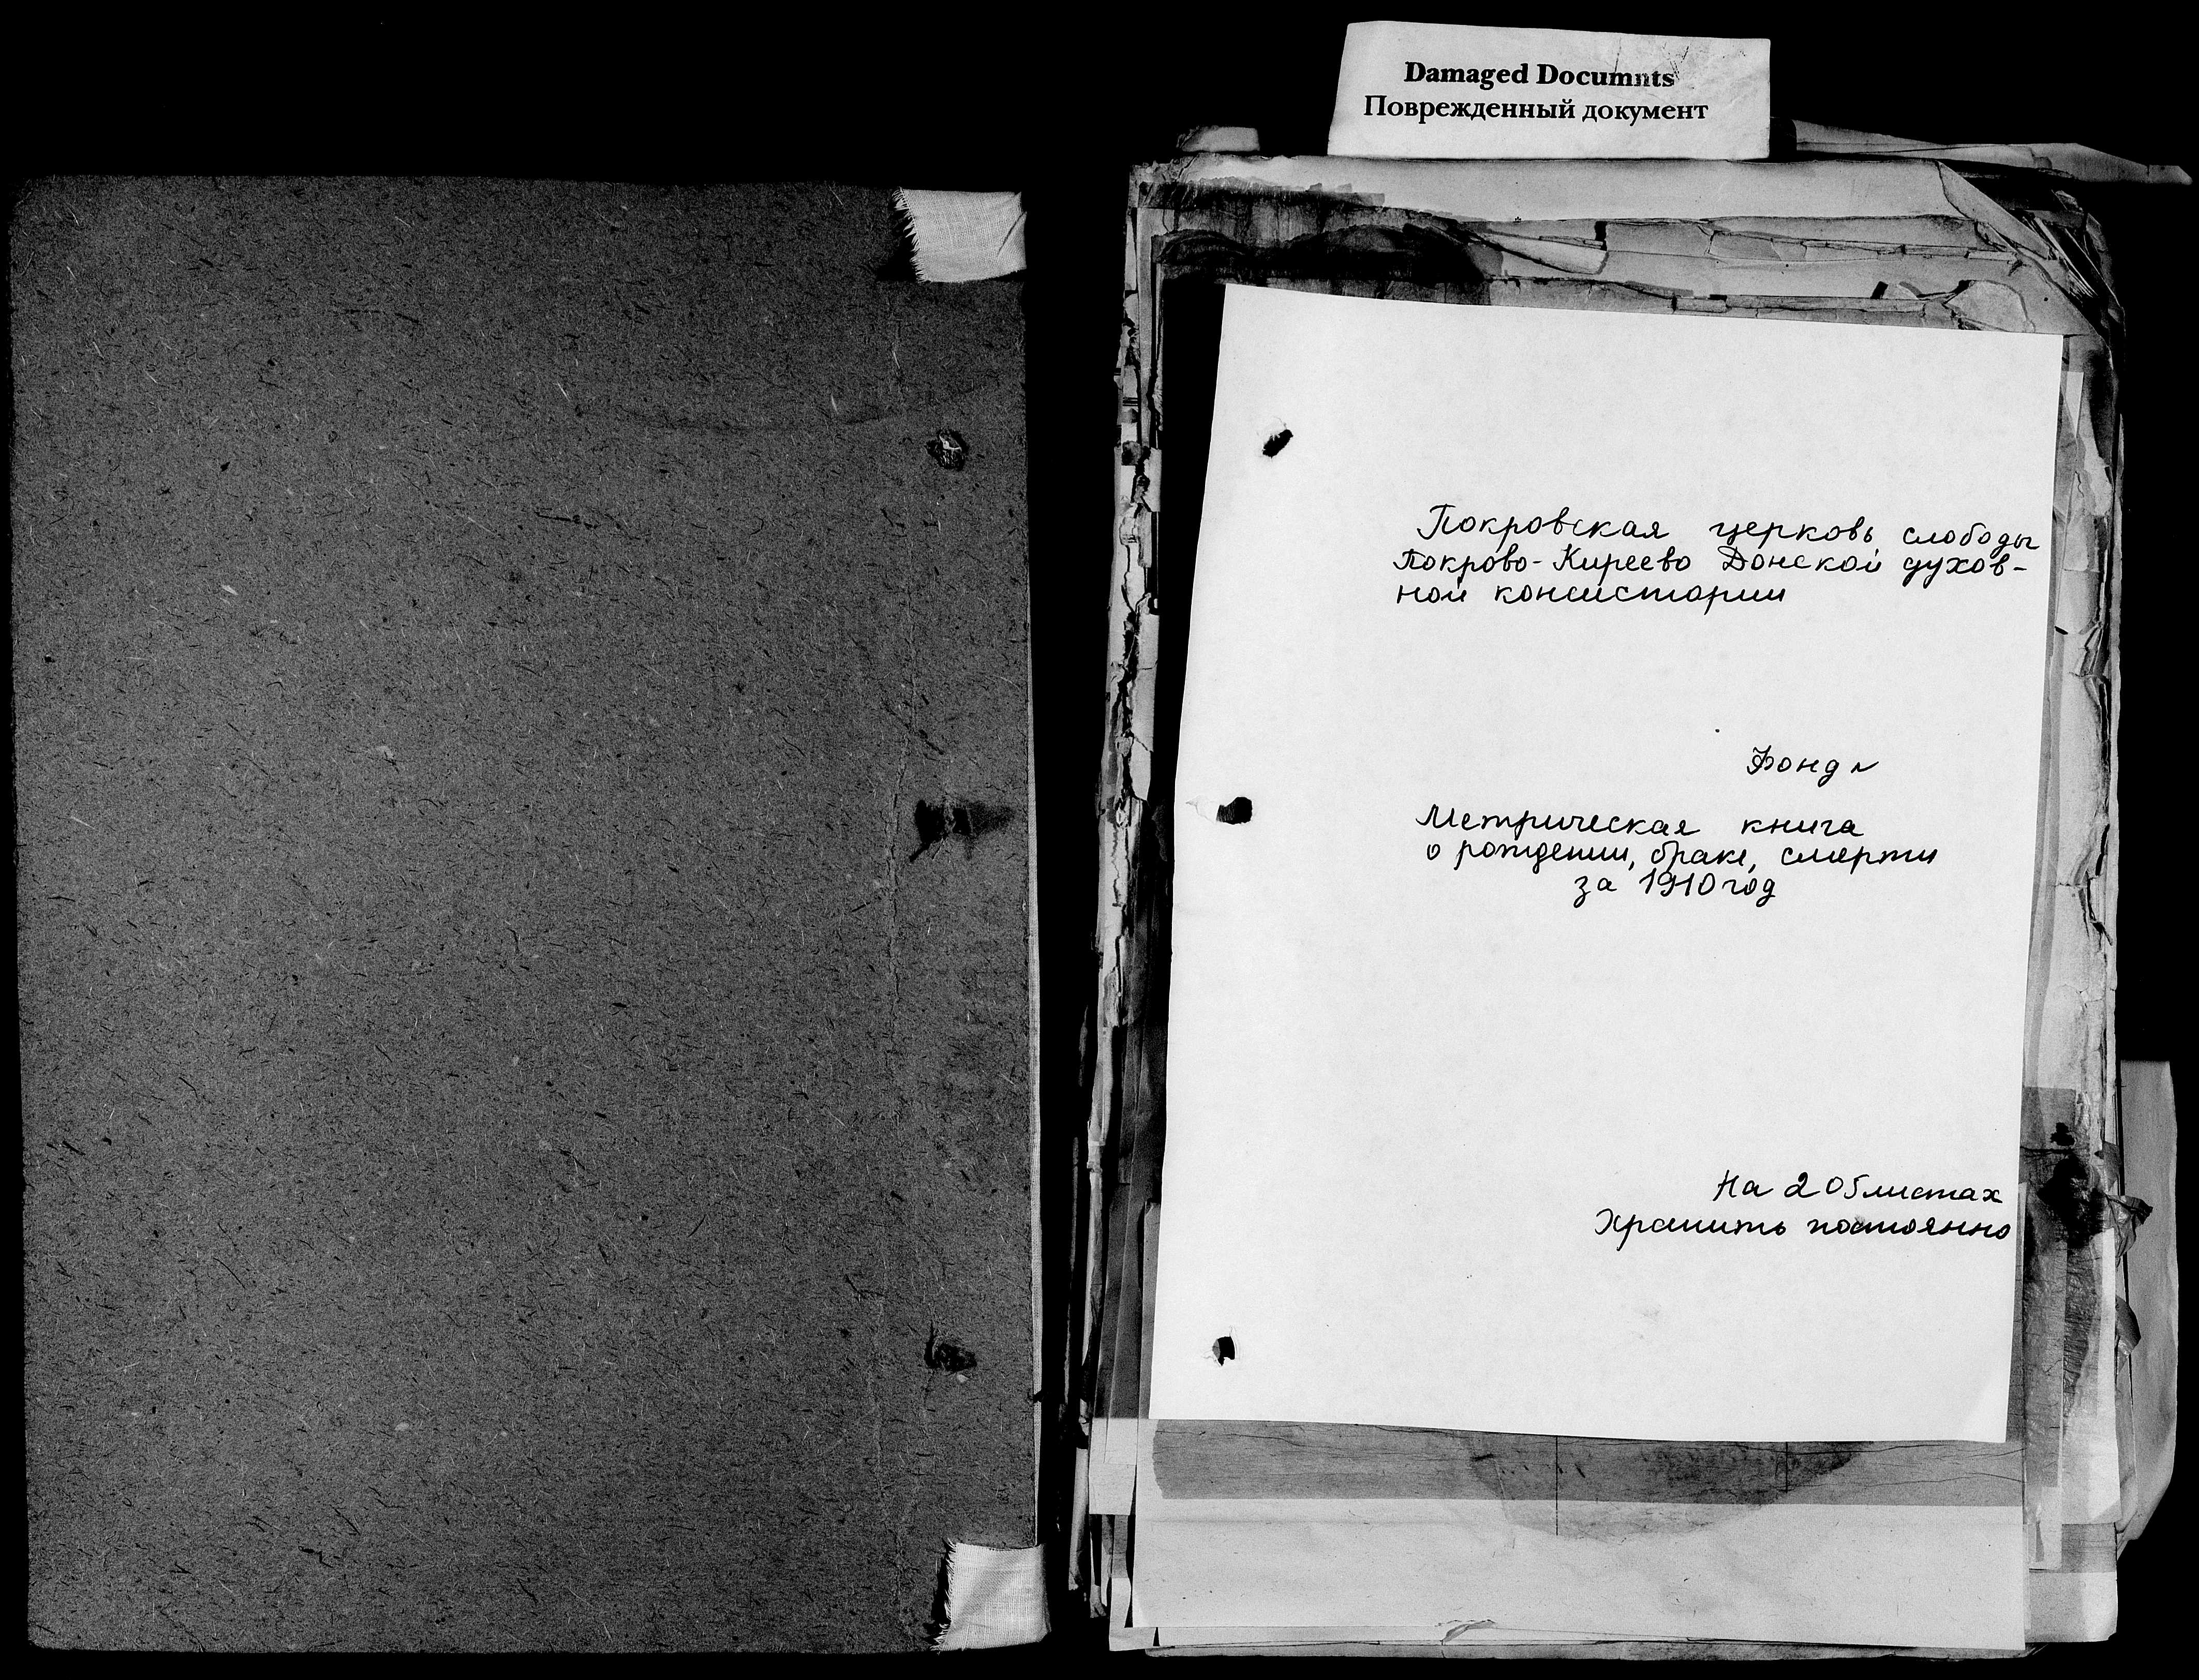 Damaged Documnts
Поврежденный документ
Покровская церковь слободы
Покрово-Киреево Донской духов-
ной консистории
Фонд №
Метрическая книга
о рождении, браке, смерти
за 1910 год
На 205 листах
Хранить постоянно